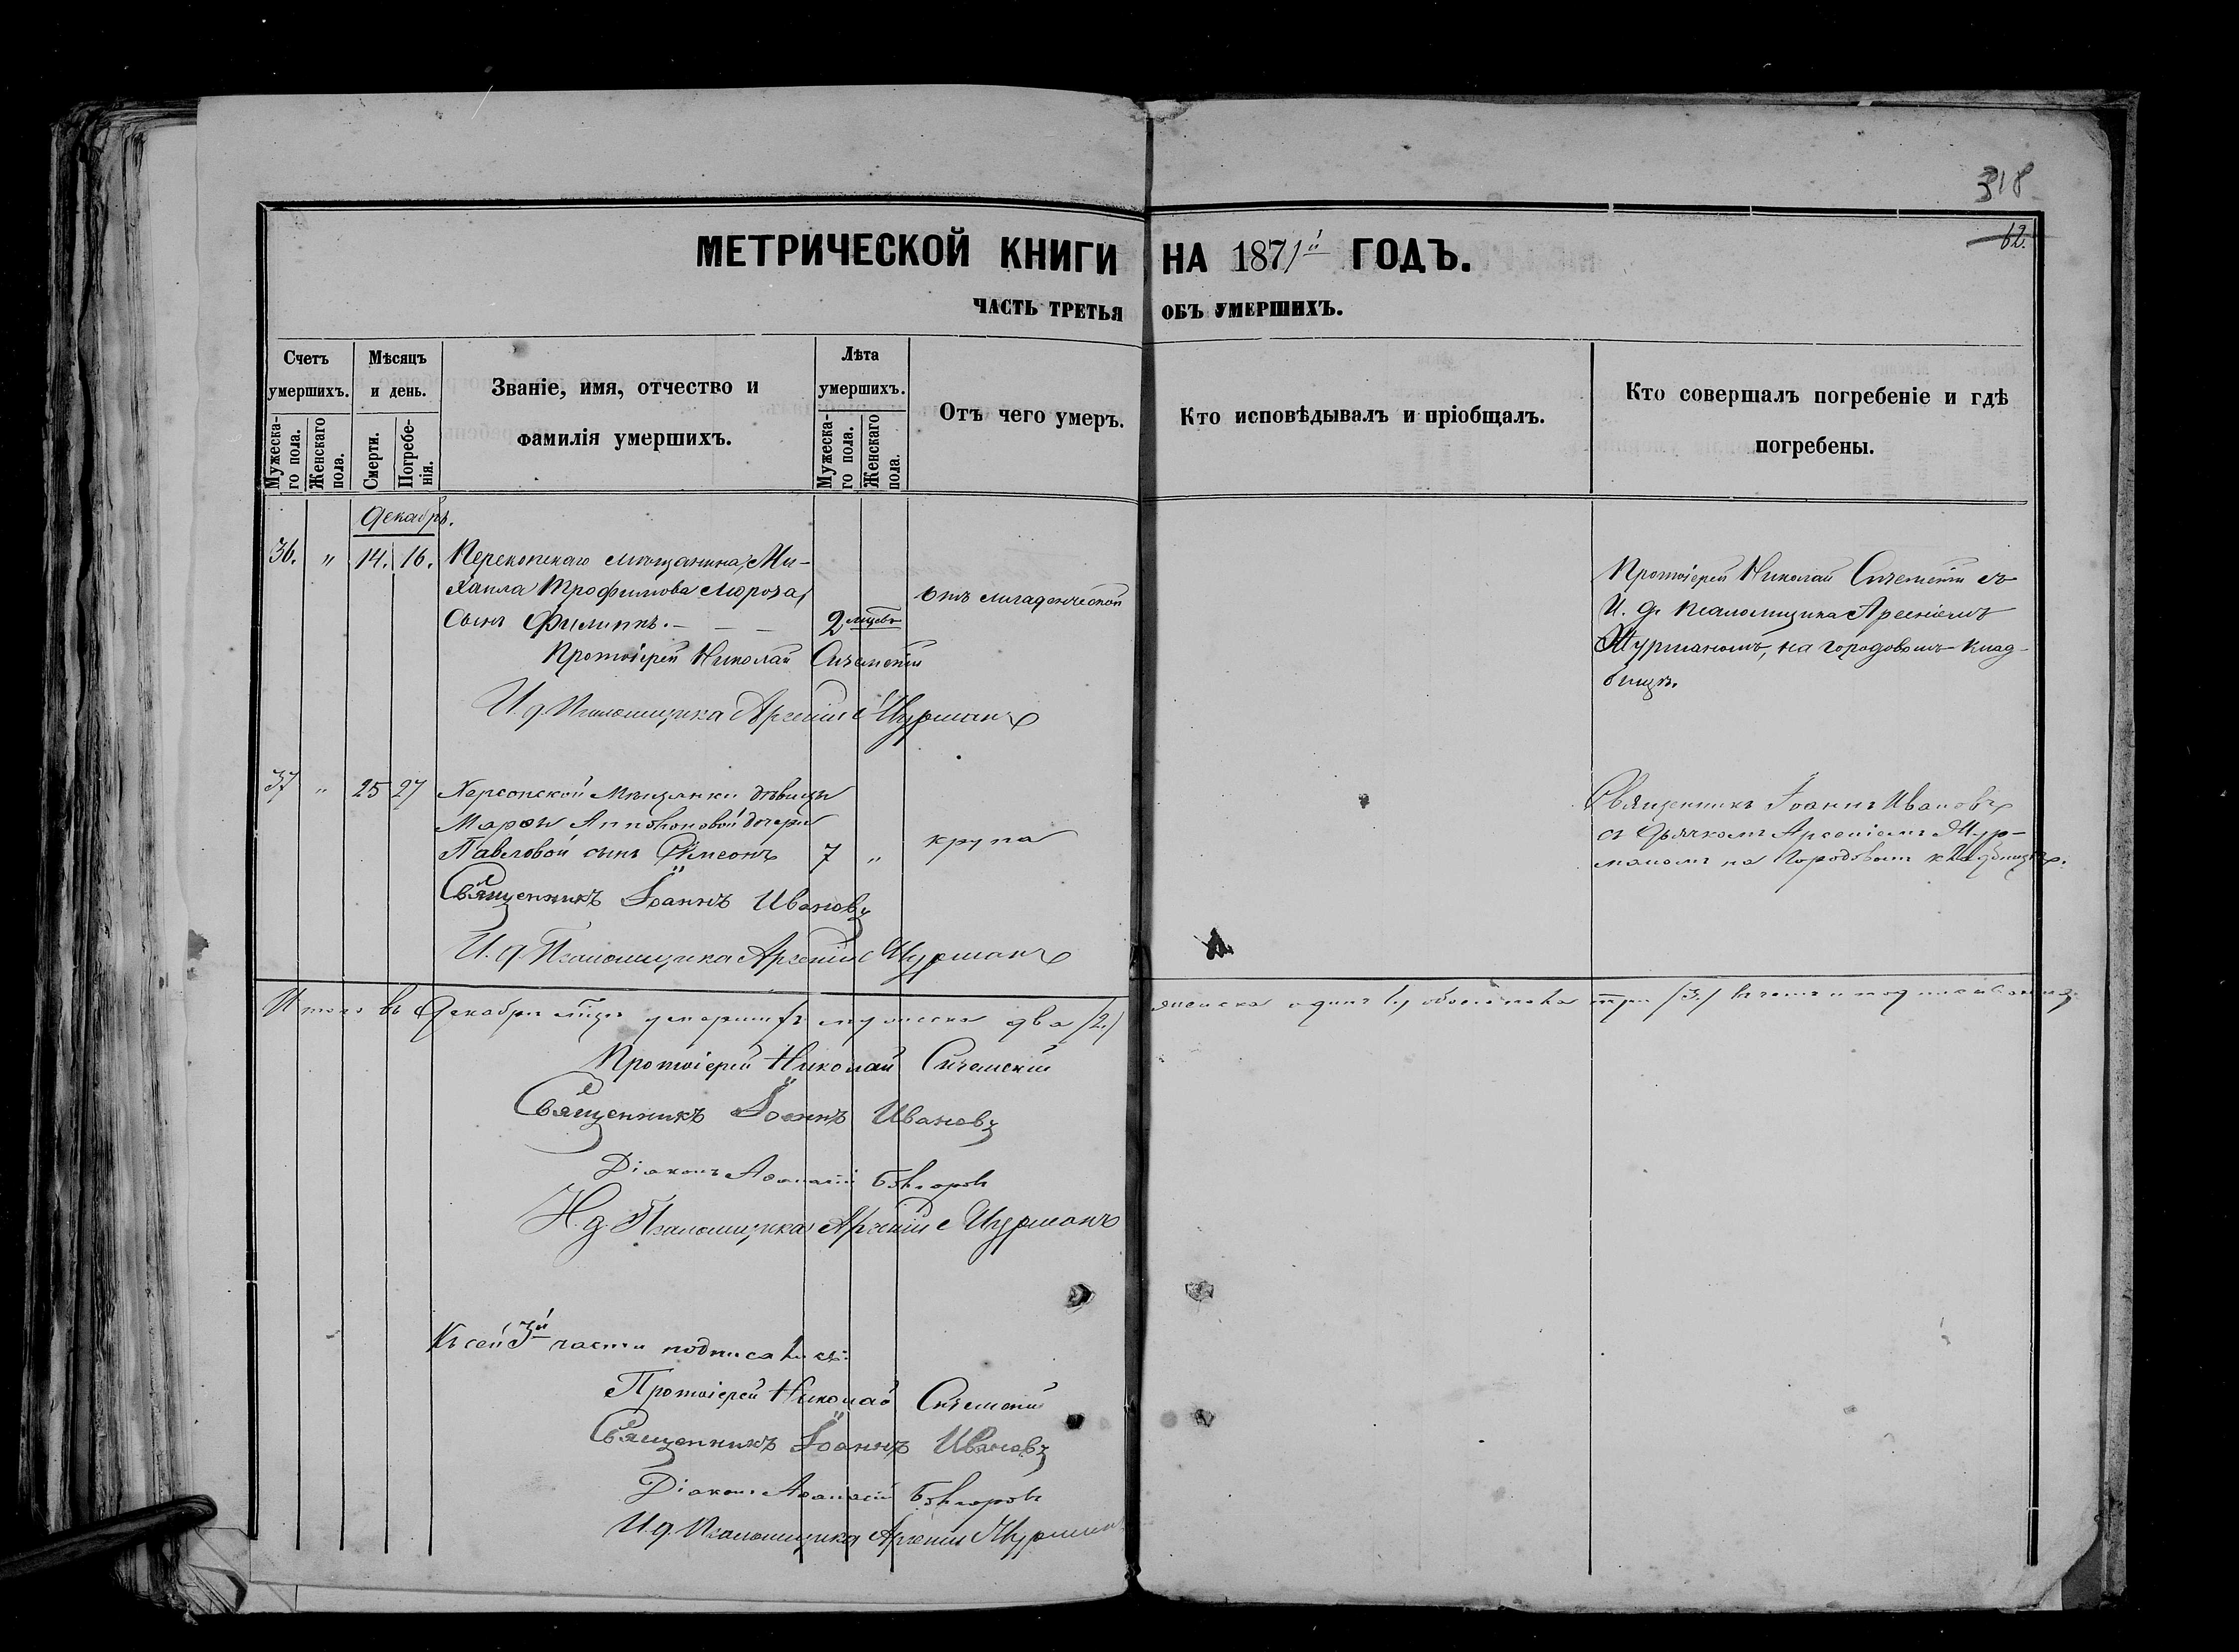 318
62.
МЕТРИЧЕСКОЙ КНИГИ НА 1871й ГОДЪ.
ЧАСТЬ ТРЕТЬЯ ОБЪ УМЕРШИХЪ.
Счетъ умершихъ.
Мужеска-го пола.
Женскаго пола.
Мѣсяцъ и день.
Смерти.
Погребе-нія.
Званіе, имя, отчество и
фамилія умершихъ.
Лѣта умершихъ.
Мужеска-го пола.
Женскаго пола.
Отъ чего умеръ.
Кто исповѣдывалъ и пріобщалъ.
Кто совершалъ погребеніе и гдѣ
погребены.
Декабрь.
36. " 14. 16. Перекопскаго мѣщанина, Ми-
хаила Трофимова Мороза,
Сынъ Филиппъ. — — — 2 мцевъ
отъ младенческой
Протоіерей Николай
И. д. Псаломщика Арсеній Мурманъ
Протоіерей Николай съ
И. д. Псаломщика Арсеніемъ
Мурманомъ, на городовомъ клад-
бищѣ.
37 " 25 27 Херсонской Мѣщанки дѣвицы
Марѳы дочери
Павловой сынъ Симеонъ 7 "
крупа
Священникъ Іоаннъ Ивановъ
И. д. Псаломщика Арсеній Мурманъ
Священникъ Іоаннъ Ивановъ
съ Дьячкомъ Арсеніемъ Мур-
маномъ на Городовомъ кладбищѣ.
Итого въ Декабрѣ мцѣ умершихъ мужеска два /2./ женска одинъ 1, обоего пола три /3./
Протоіерей Николай
Священникъ Іоаннъ Ивановъ
Діаконъ Аѳанасій
И. д. Псаломщика Арсеній Мурманъ
Къ сей 3й части подписались:
Протоіерей Николай
Священникъ Іоаннъ Ивановъ
Діаконъ Аѳанасій
И. д. Псаломщика Арсеній Мурманъ